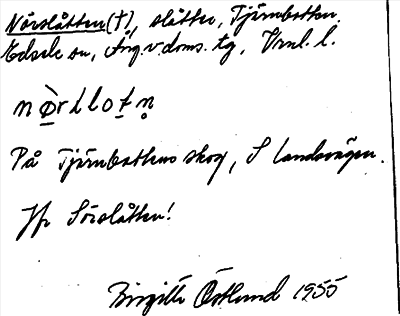 Nörslåtten (†), slåtter, Tjärnbotten.
Edsele sn, Ång. v. doms. tg, Vrnl. l.
På Tjärnbottens skog, S landsvägen.
Jfr Sörslåtten!
Birgitta Östlund 1955